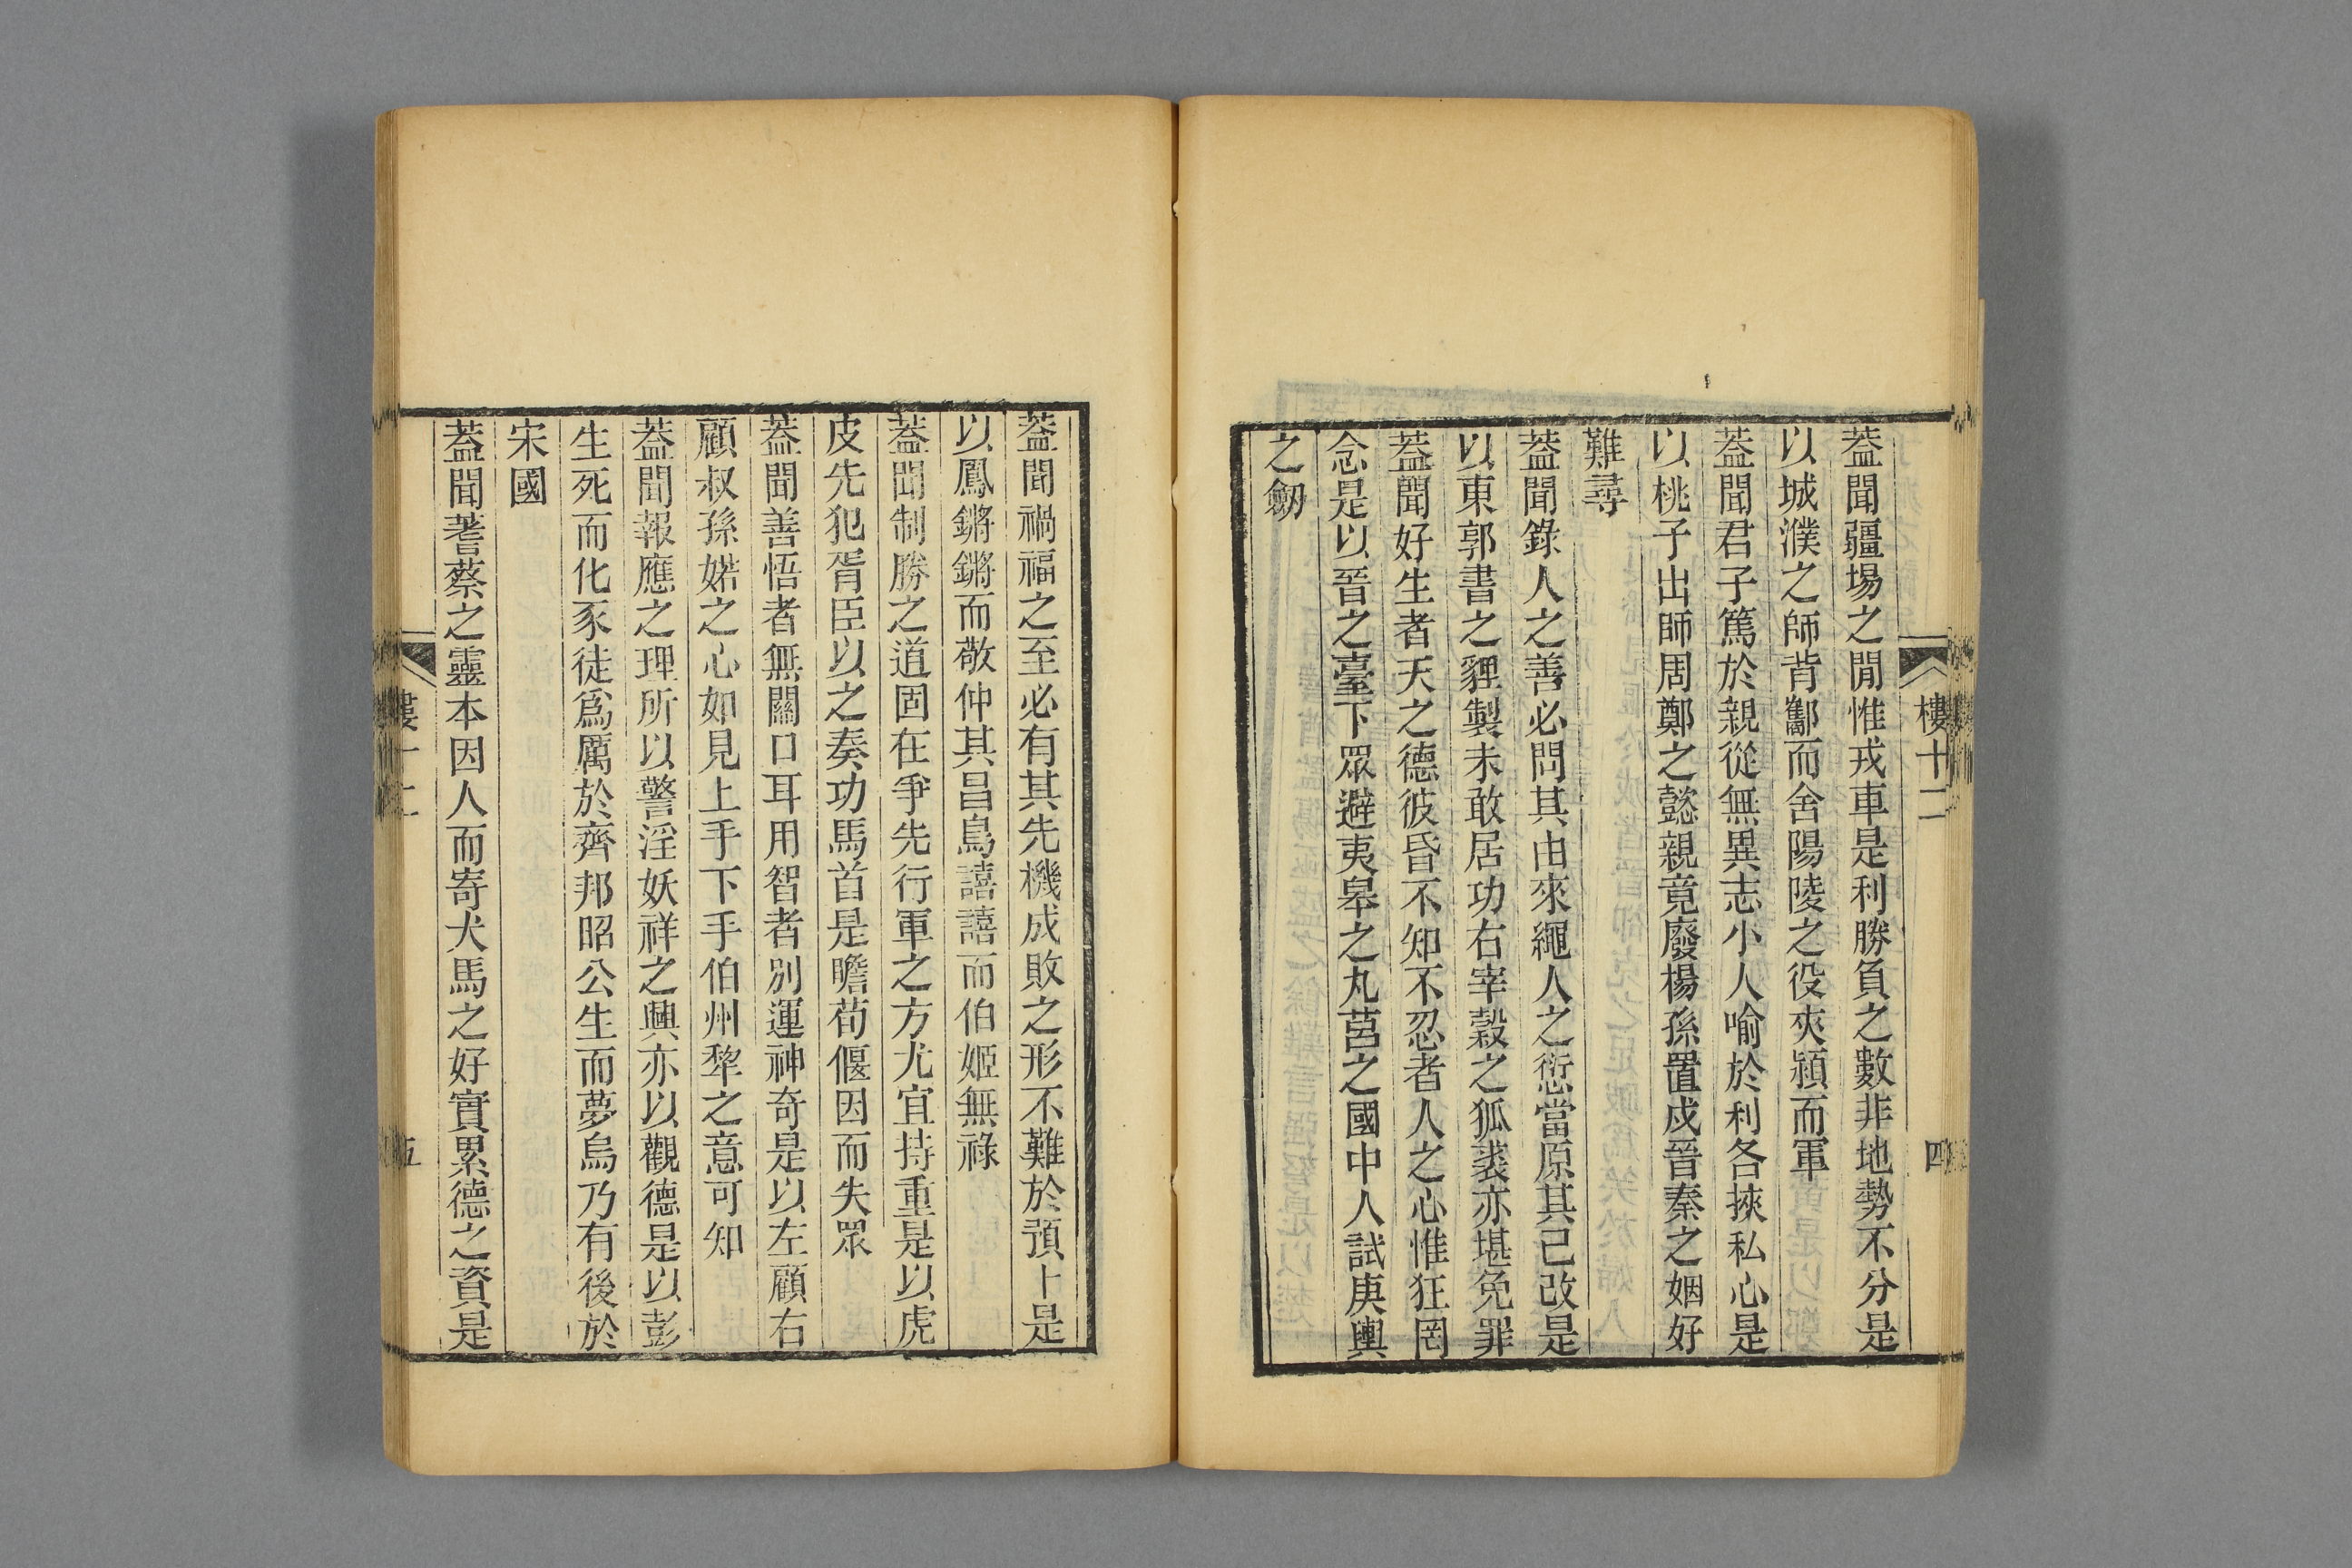 樓十二
四
蓋聞疆埸之閒惟戎車是利勝負之數非地勢不分是
以城濮之師背酅而舍陽陵之役夾潁而軍
蓋聞君子篤於親從無異志小人喻於利各挾私心是
以桃子出師周鄭之懿親竟廢楊孫置戍晉秦之姻好
難尋
蓋聞錄人之善必問其由來繩人之愆當原其已改是
以東郭書之貍製未敢居功右宰穀之狐裘亦堪免罪
蓋聞好生者天之德彼昏不知不忍者人之心惟狂罔
念是以晉之臺下眾避夷皋之丸莒之國中人試庚輿
之劒
蓋聞禍福之至必有其先機成敗之形不難於預卜是
以鳳鏘鏘而敬仲其昌鳥譆譆而伯姬無祿
蓋聞制勝之道固在爭先行軍之方尤宜持重是以虎
皮先犯胥臣以之奏功馬首是瞻荀偃因而失眾
蓋聞善悟者無關口耳用智者別運神奇是以左顧右
顧叔孫婼之心如見上手下手伯州犂之意可知
蓋聞報應之理所以警淫妖祥之興亦以觀德是以彭
生死而化豕徒爲厲於齊邦昭公生而夢烏乃有後於
宋國
蓋聞蓍蔡之靈本因人而寄犬馬之好實累德之資是
樓十二
五